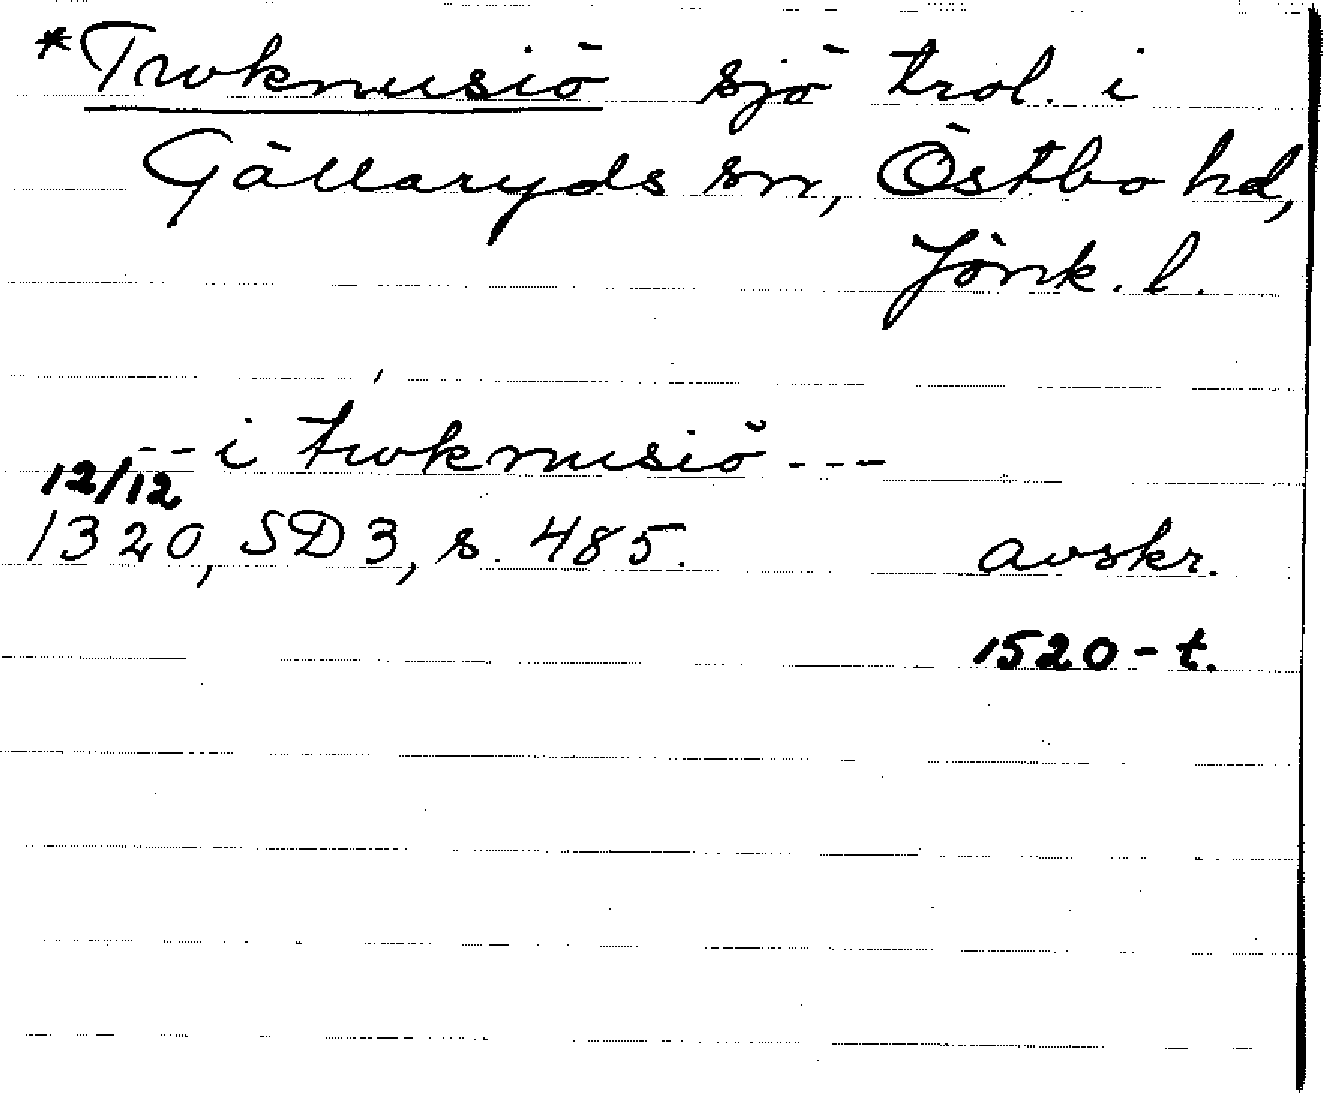 *Trokmusiö sjö trol. i
Gällaryds sn, Östbo hd,
Jönk. l.
-- i trokmusiö ---
12/12
1320, SD3, s. 485. avskr.
1520-t.